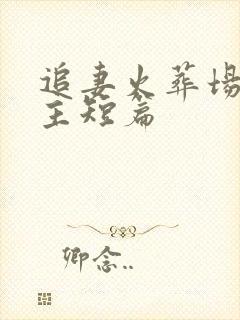 追妻火葬场
主短篇
卿念..